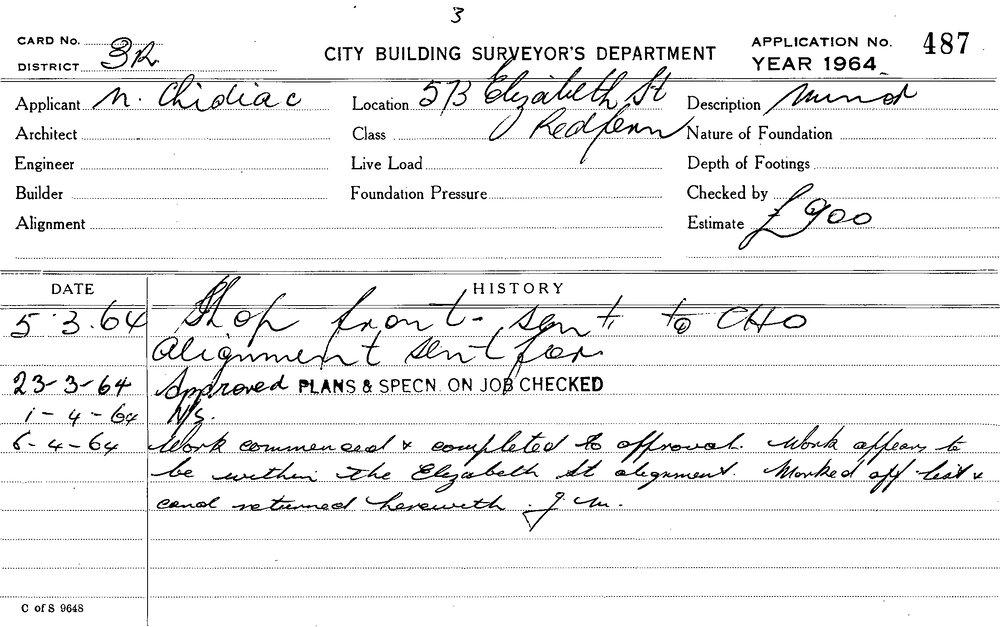 3
CARD No.
DISTRICT 3R
CITY BUILDING SURVEYOR'S DEPARTMENT
APPLICATION No. 487
YEAR 1964
Applicant N. Chidiac
Location 573 Elizabeth St
Redfern
Description Minor
Architect
Class
Nature of Foundation
Engineer
Live Load
Depth of Footings
Builder
Foundation Pressure
Checked by
Alignment
Estimate £900
DATE HISTORY
5.3.64 Shop front - sent to CHO
Alignment sent for
23-3-64 Approved PLANS & SPECN. ON JOB CHECKED
1-4-64 N/S.
6-4-64 Work commenced & completed to approval. Work appears to
be within the Elizabeth St alignment. Marked off list &
card returned herewith. J.M.
C of S 9648